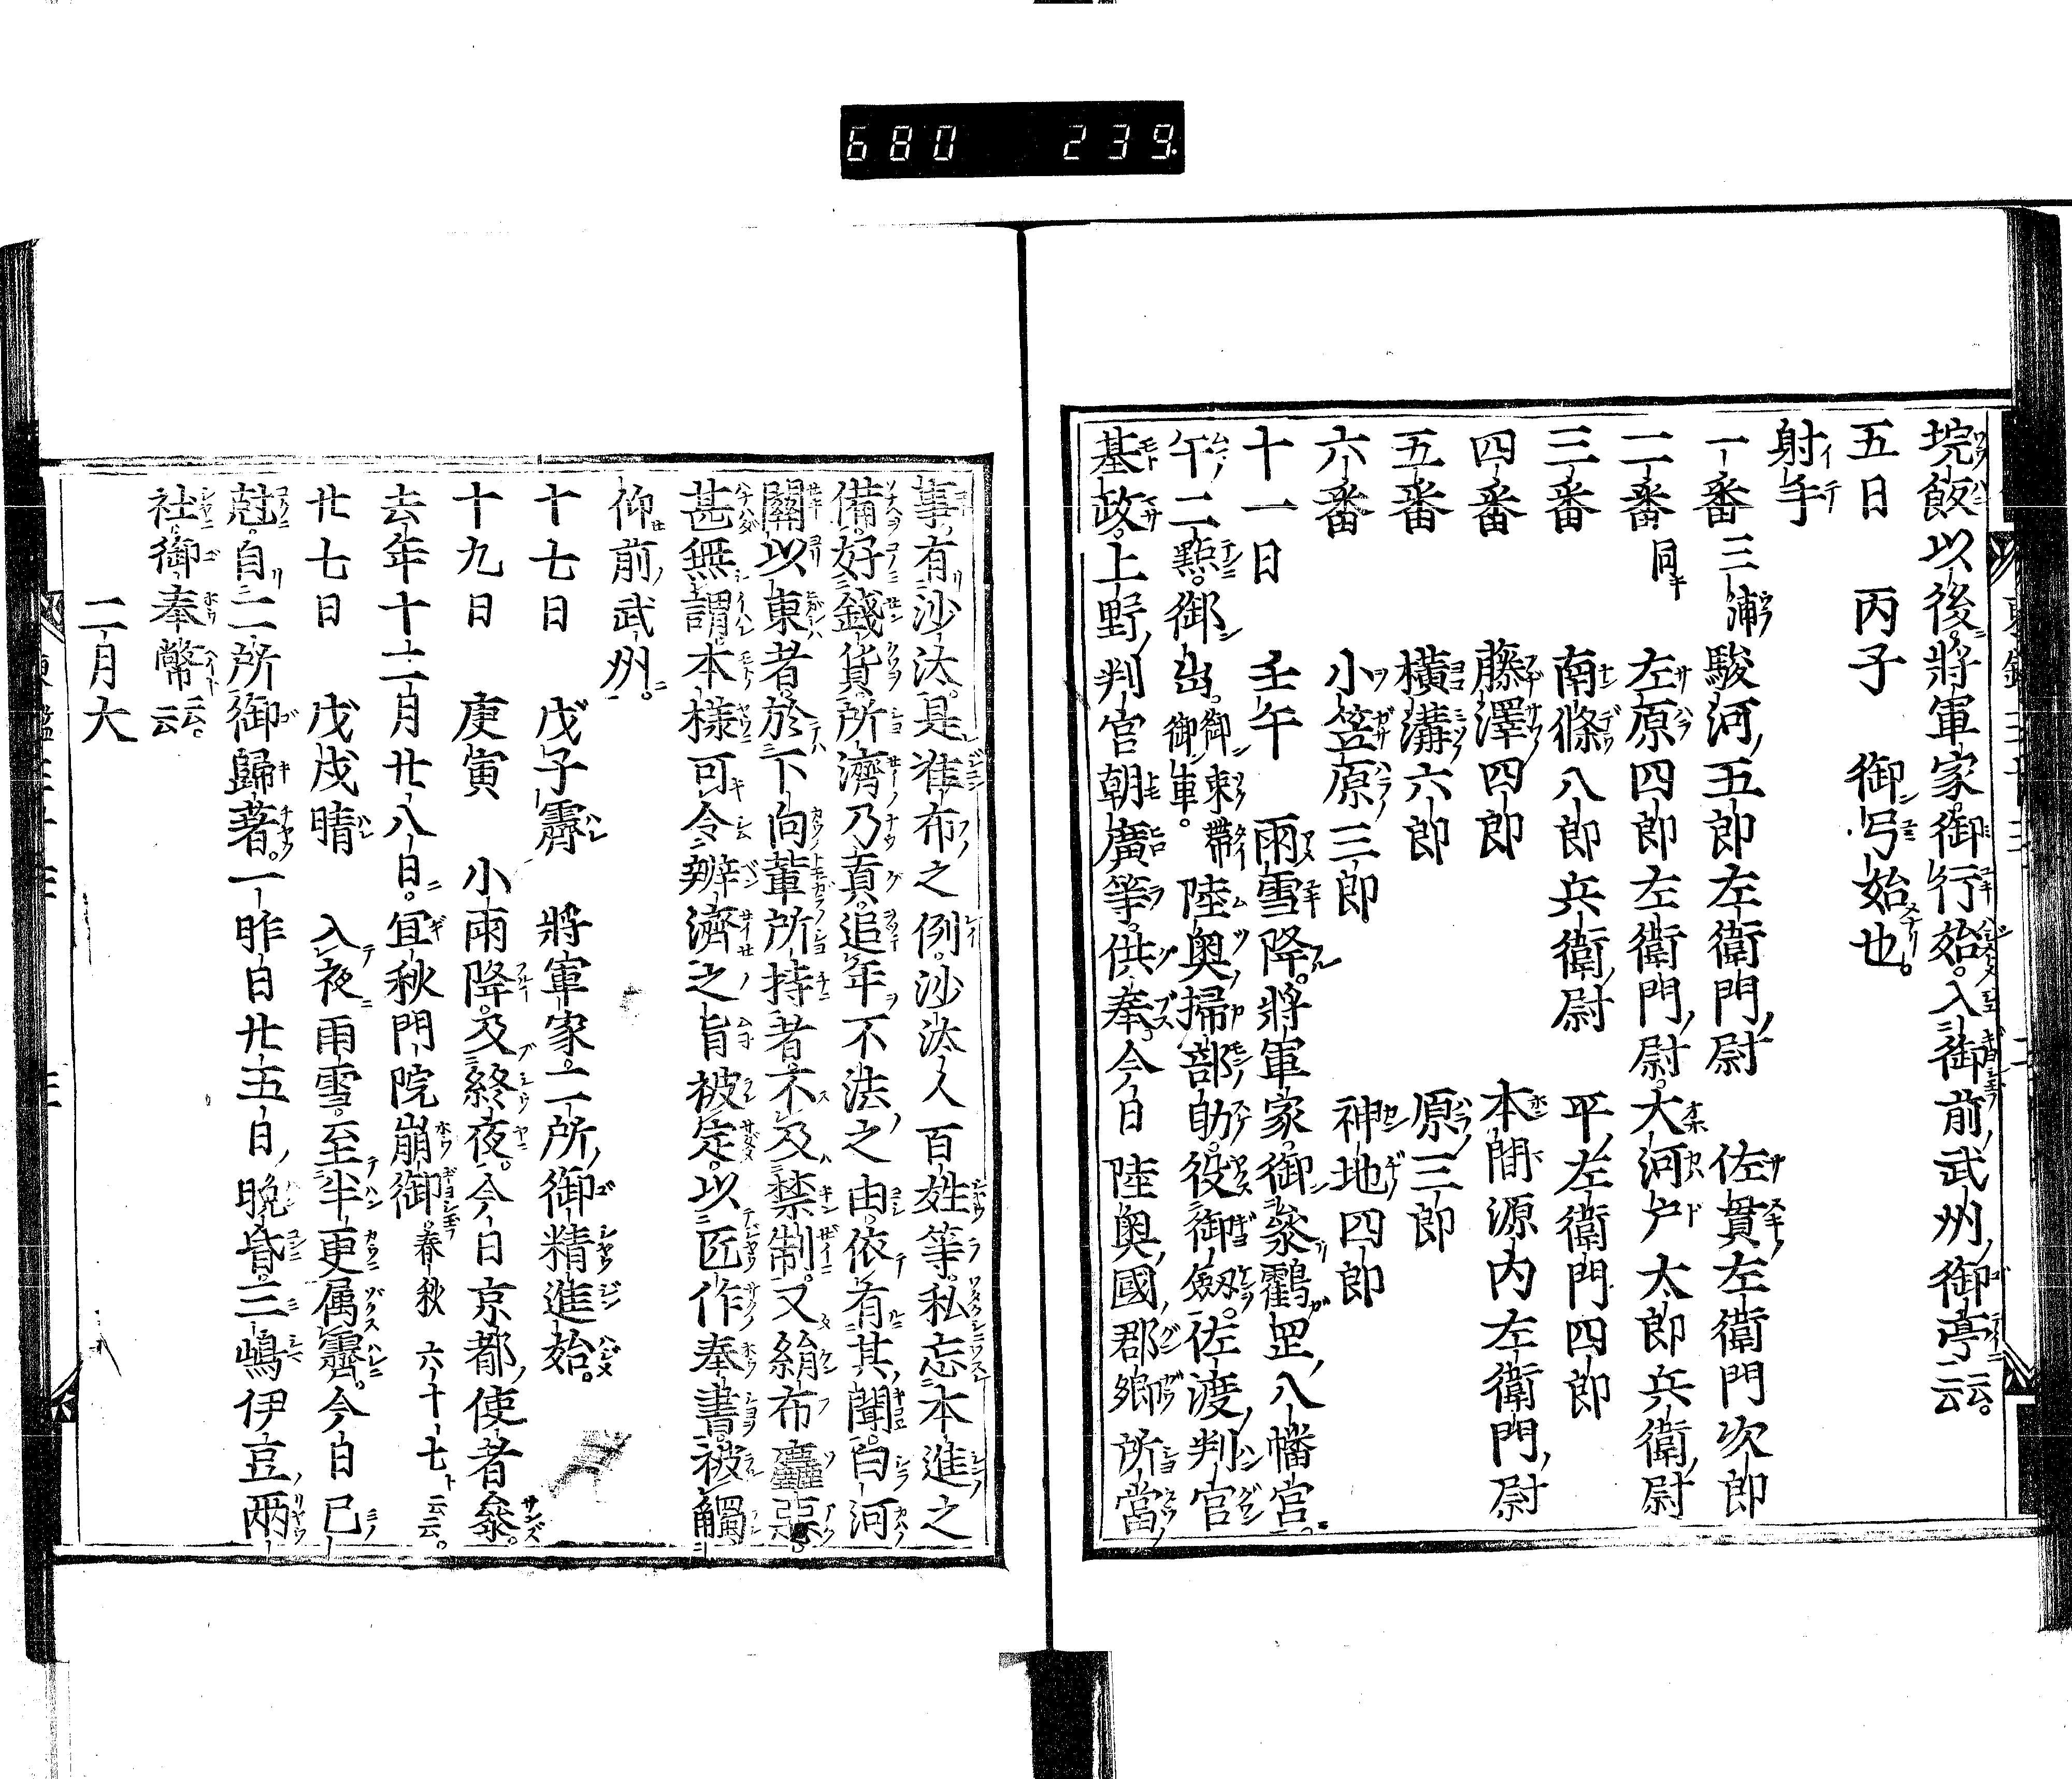 680 239.
垸飯以後。將軍家。御行始。入御前武州御亭云云。
五日 丙子 御弓始也。
射手
一番 三浦駿河五郎左衛門尉 佐貫左衛門次郎
二番 同 左原四郎左衛門尉。大河戸太郎兵衛尉
三番 南條八郎兵衛尉 平左衛門四郎
四番 藤澤四郎 本間源内左衛門尉
五番 横溝六郎 原三郎
六番 小笠原三郎 神地四郎
十一日 壬午 雨雪降。將軍家。御參鶴罡八幡宮。
午二點。御出。御束帶御車。陸奥掃部助。役御劔。佐渡判官
基政。上野判官朝廣等。供奉。今日 陸奥國郡郷所當
事。有沙汰。是准布之例。沙汰人百姓等。私忘本進之
備。好錢貨所濟乃貢。追年不法之由。依有其聞。白河
關以東者。於下向輩所持者。不及禁制。又絹布麤惡
甚無謂。本様可令辨濟之旨被定。以匠作奉書。被觸
仰前武州。
十七日 戊子霽 將軍家。二所御精進始。
十九日 庚寅 小雨降。及終夜。今日京都使者參。
去年十二月廿八日。宜秋門院崩御。春秋六十七云云。
廿七日 戊戌晴 入夜雨雪。至半更属霽。今日巳
尅。自二所御歸著。一昨日廿五日晩昏。三嶋伊豆兩
社。御奉幣云云。
二月大